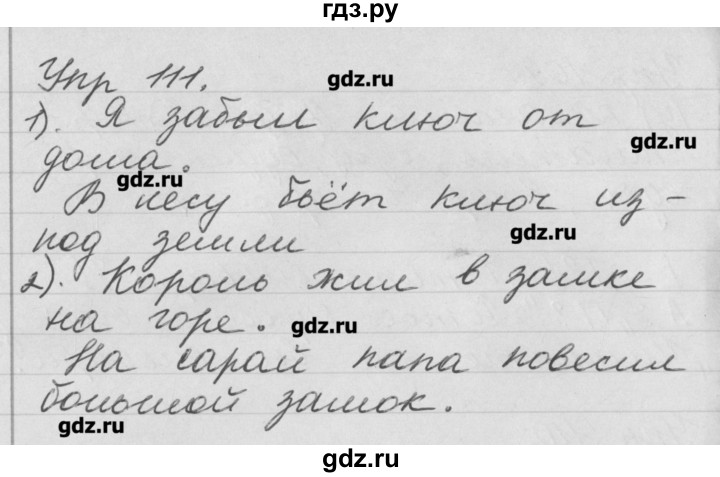 гдз.ру
Упр 111.
gdz.ru
1). Я забыл ключ от
gdz.ru
дома.
gdz.ru
В лесу бьёт ключ из-
gdz.ru
под земли
2). Король жил в замке
на горе.
gdz.ru
На сарай папа повесил
большой замок.
gdz.ru
gdz.ru